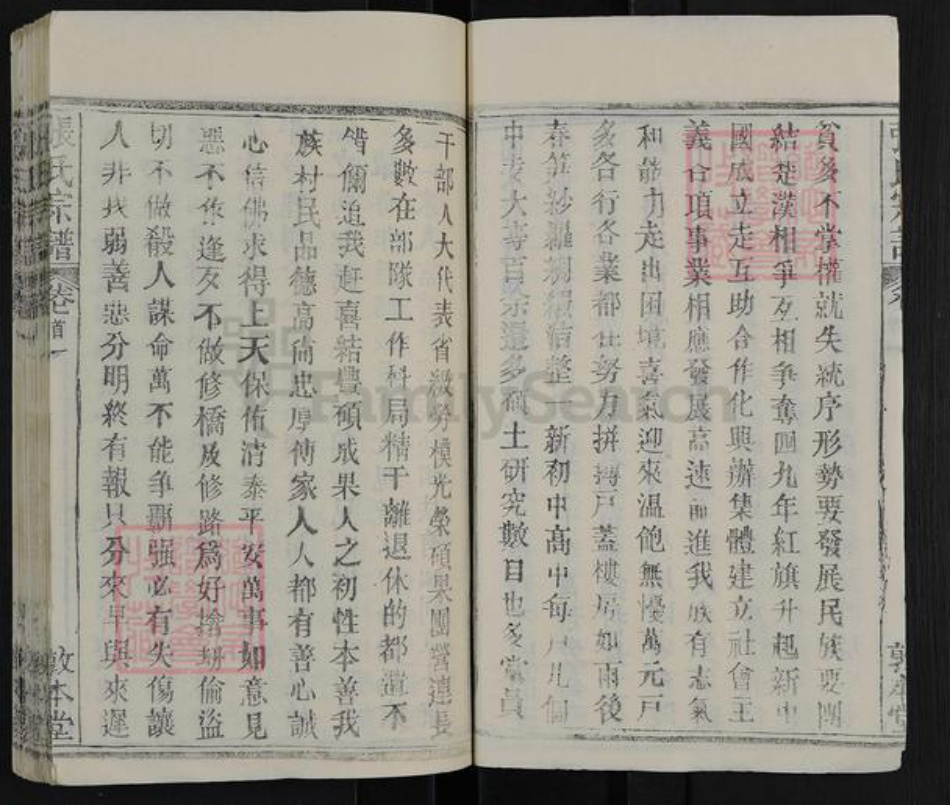 貧多不掌權就失統序形勢要發展民族要團
結楚漢相爭互相爭奪四九年紅旗升起新中
國成立走互助合作化興辦集體建立社會主
義合項事業相應發展高速前進我族有志氣
和能力走出困境喜氣迎來溫飽無憂萬元戶
多各行各業都在努力拼搏戶蓋樓房如雨後
春笋紗羅綢緞洁整一新初中高中每戶几個
中專大專百余還多碩士研究數目也多黨員
干部人大代表省級勞模光榮碩果團營連長
多數在部隊工作科局精干離退休的都還不
错爾追我赶喜結豐碩成果人之初性本善我
族村民品德高尚忠厚傳家人人都有善心誠
心信佛求得上天保佑清泰平安萬事如意見
惡不作逢歹不做修橋及修路為好搶劫偷盜
切不做殺人謀命萬不能爭霸强必有失傷讓
人非找弱善惡分明終有報只分來早與來遲
張氏宗譜
卷首
敦本堂
FamilySearch